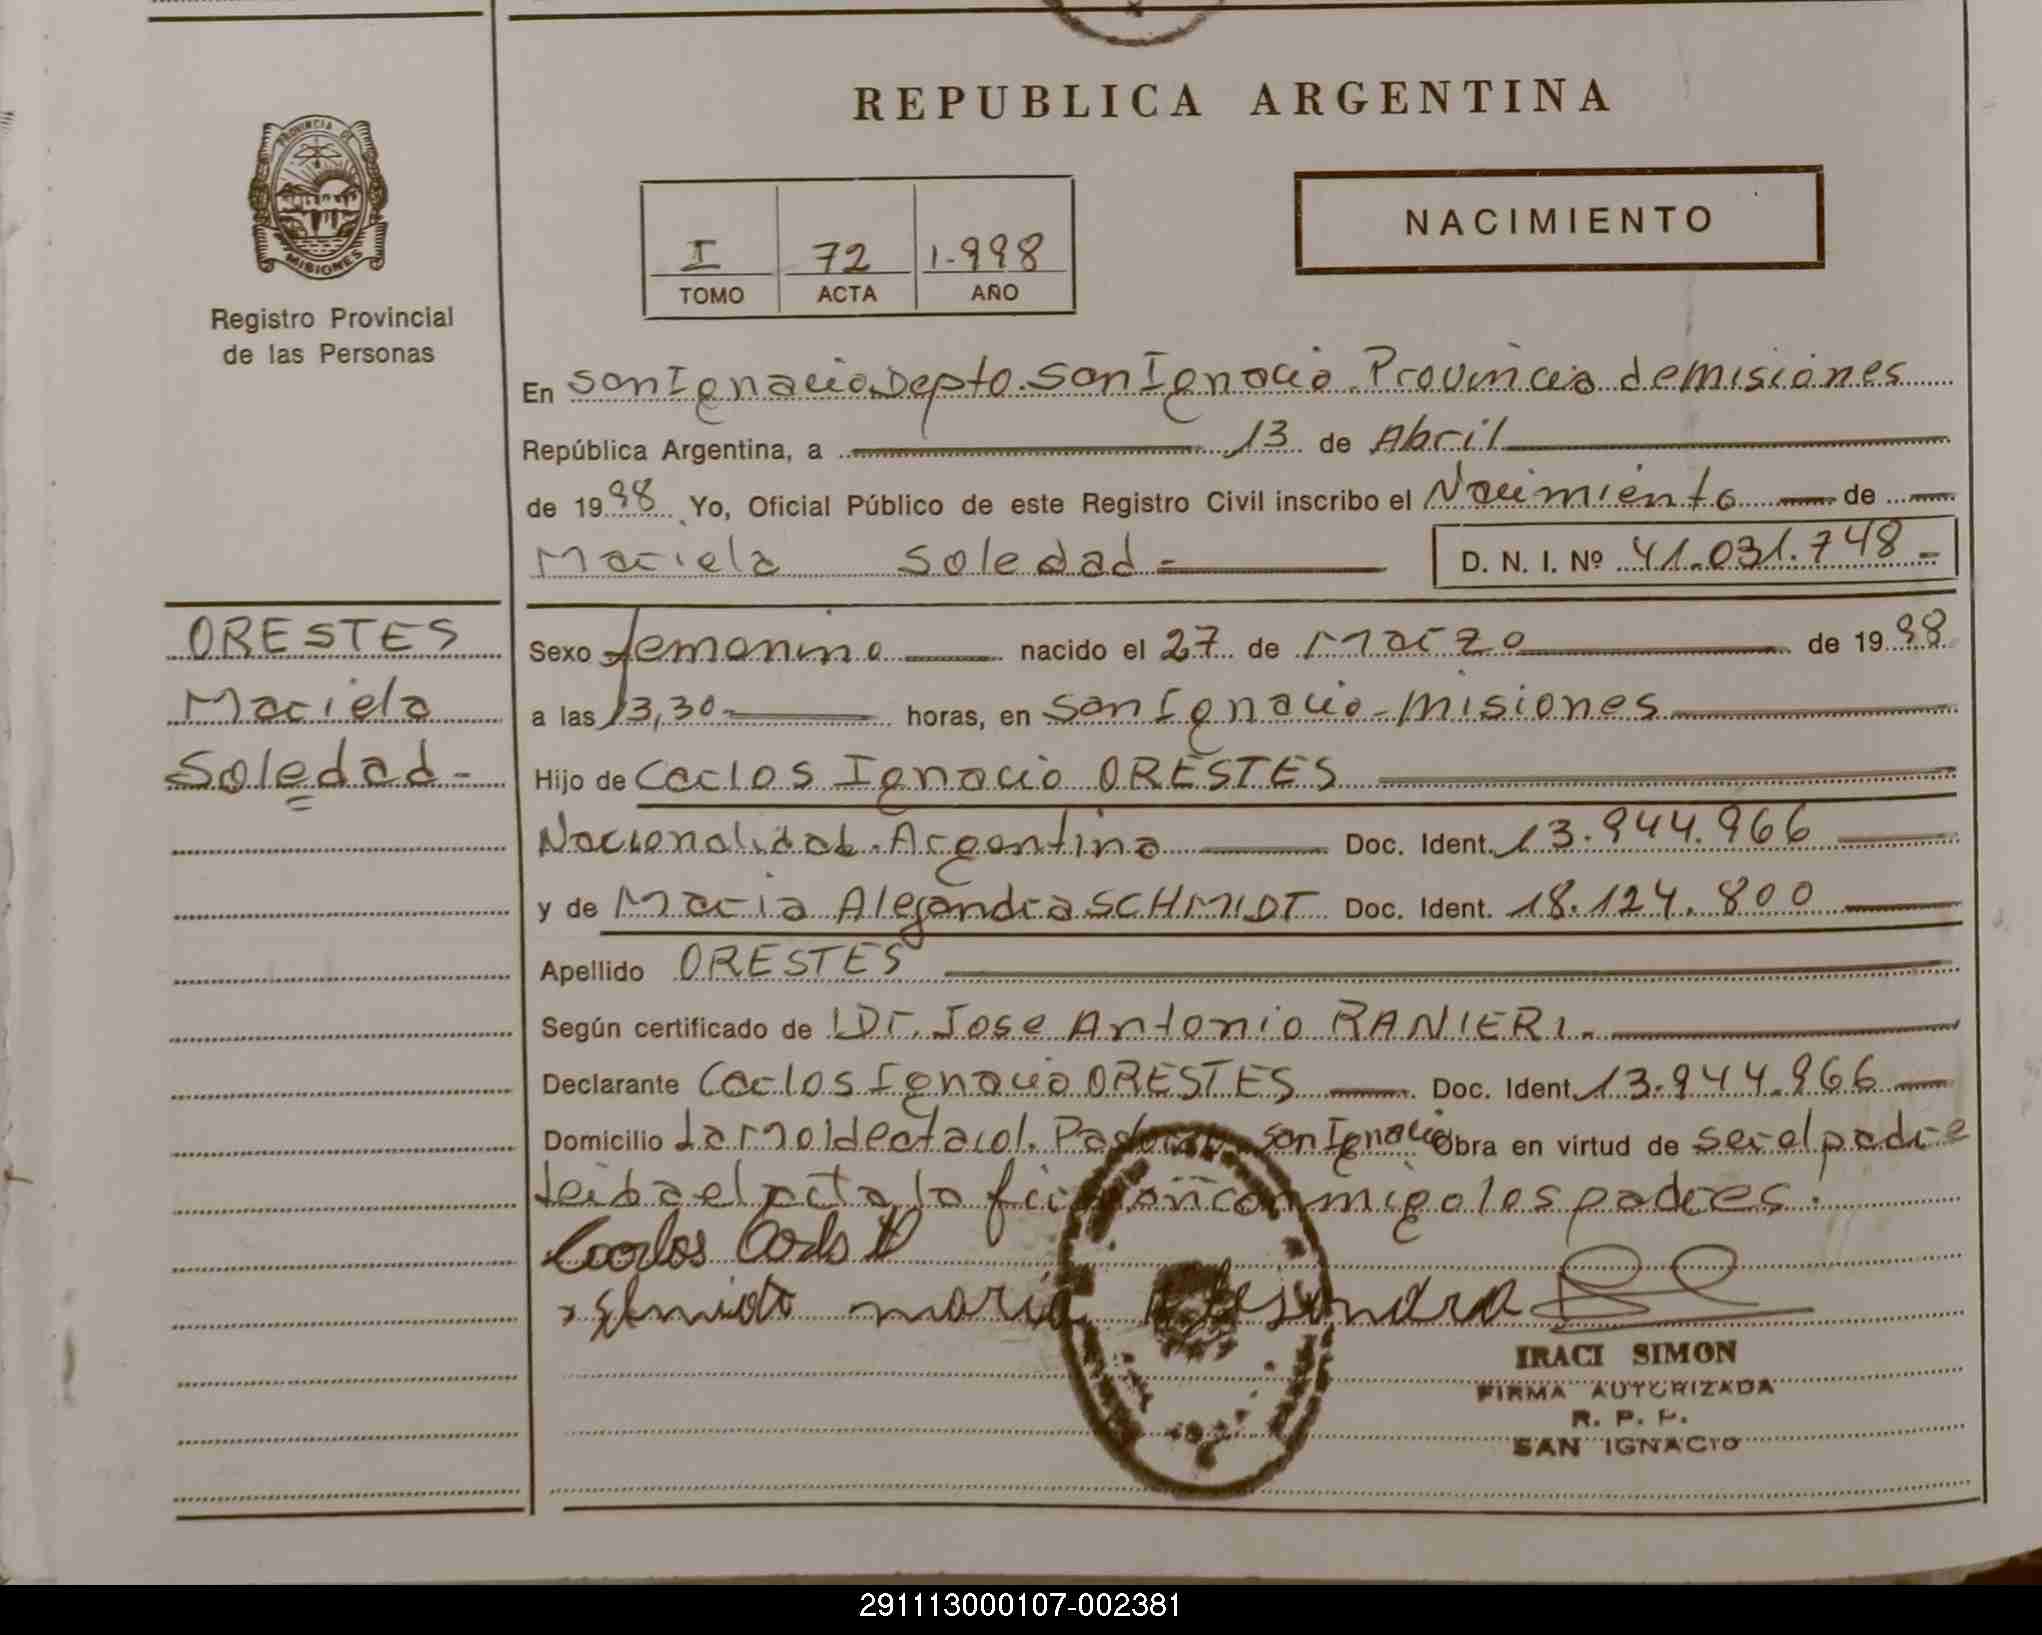 REPUBLICA ARGENTINA
PROVINCIA DE
MISIONES
Registro Provincial
de las Personas
I 72 1.998
TOMO ACTA AÑO
NACIMIENTO
En San Ignacio Depto. San Ignacio Provincia de misiones
República Argentina, a 13 de Abril
de 1998 Yo, Oficial Público de este Registro Civil inscribo el Nacimiento de
Mariela Soledad - D. N. I. Nº 41.031.748 -
ORESTES
Mariela
Soledad -
Sexo femenino nacido el 27 de Marzo de 1998
a las 13,30 horas, en San Ignacio - Misiones
Hijo de Carlos Ignacio ORESTES
Nacionalidad. Argentina Doc. Ident. 13.944.966
y de Maria Alejandra SCHMIDT Doc. Ident. 18.124.800
Apellido ORESTES
Según certificado de Dr. Jose Antonio RANIERI.
Declarante Carlos Ignacio ORESTES Doc. Ident. 13.944.966
Domicilio San Ignacio Obra en virtud de ser el padre
leida el acta la firman conmigo los padres.
Carlos
maria Alejandra
IRACI SIMON
FIRMA AUTORIZADA
R. P. P.
SAN IGNACIO
291113000107-002381